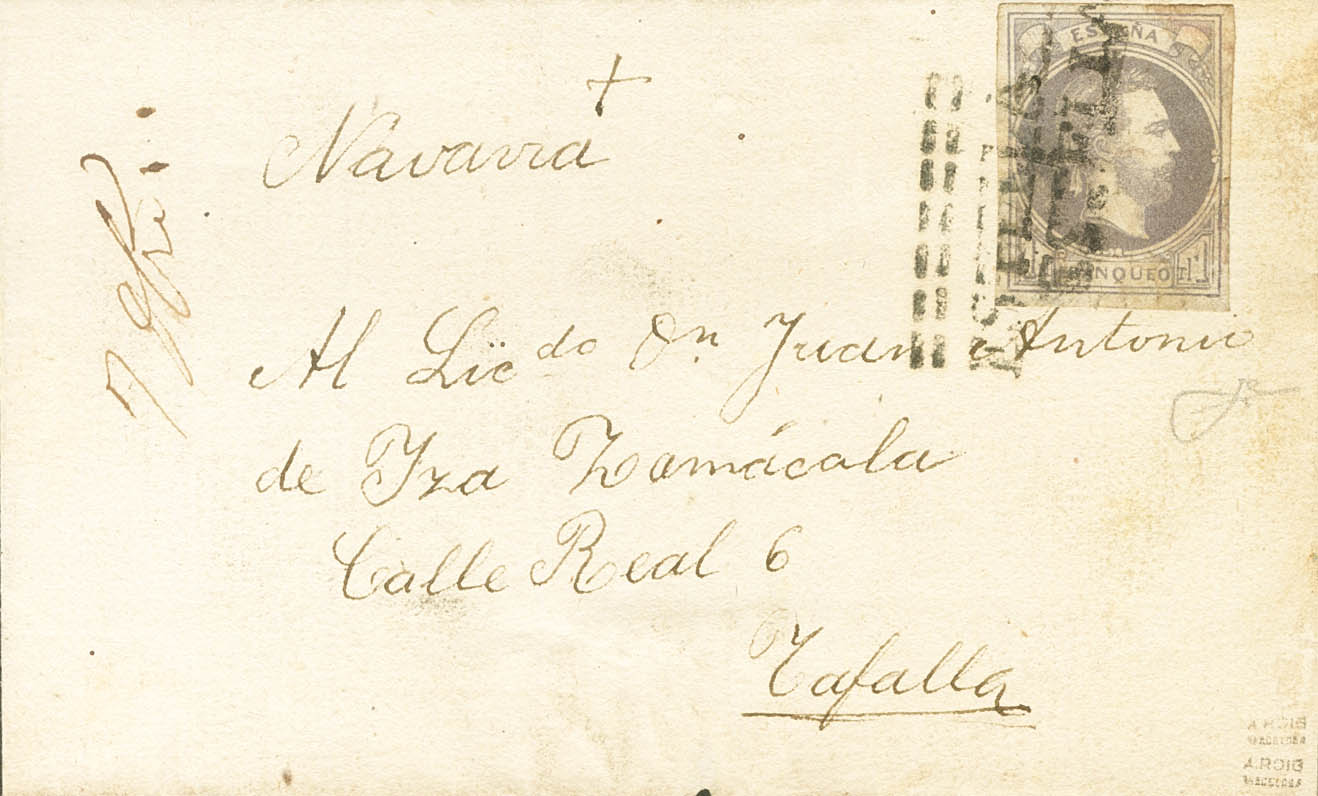 ESPAÑA
FRANQUEO 1 Rl
+
Navarra
Al Licdo Dn Juan Antonio
de Yza Zamácola
Calle Real 6
Tafalla
A. ROIG
BARCELONA
A. ROIG
BARCELONA